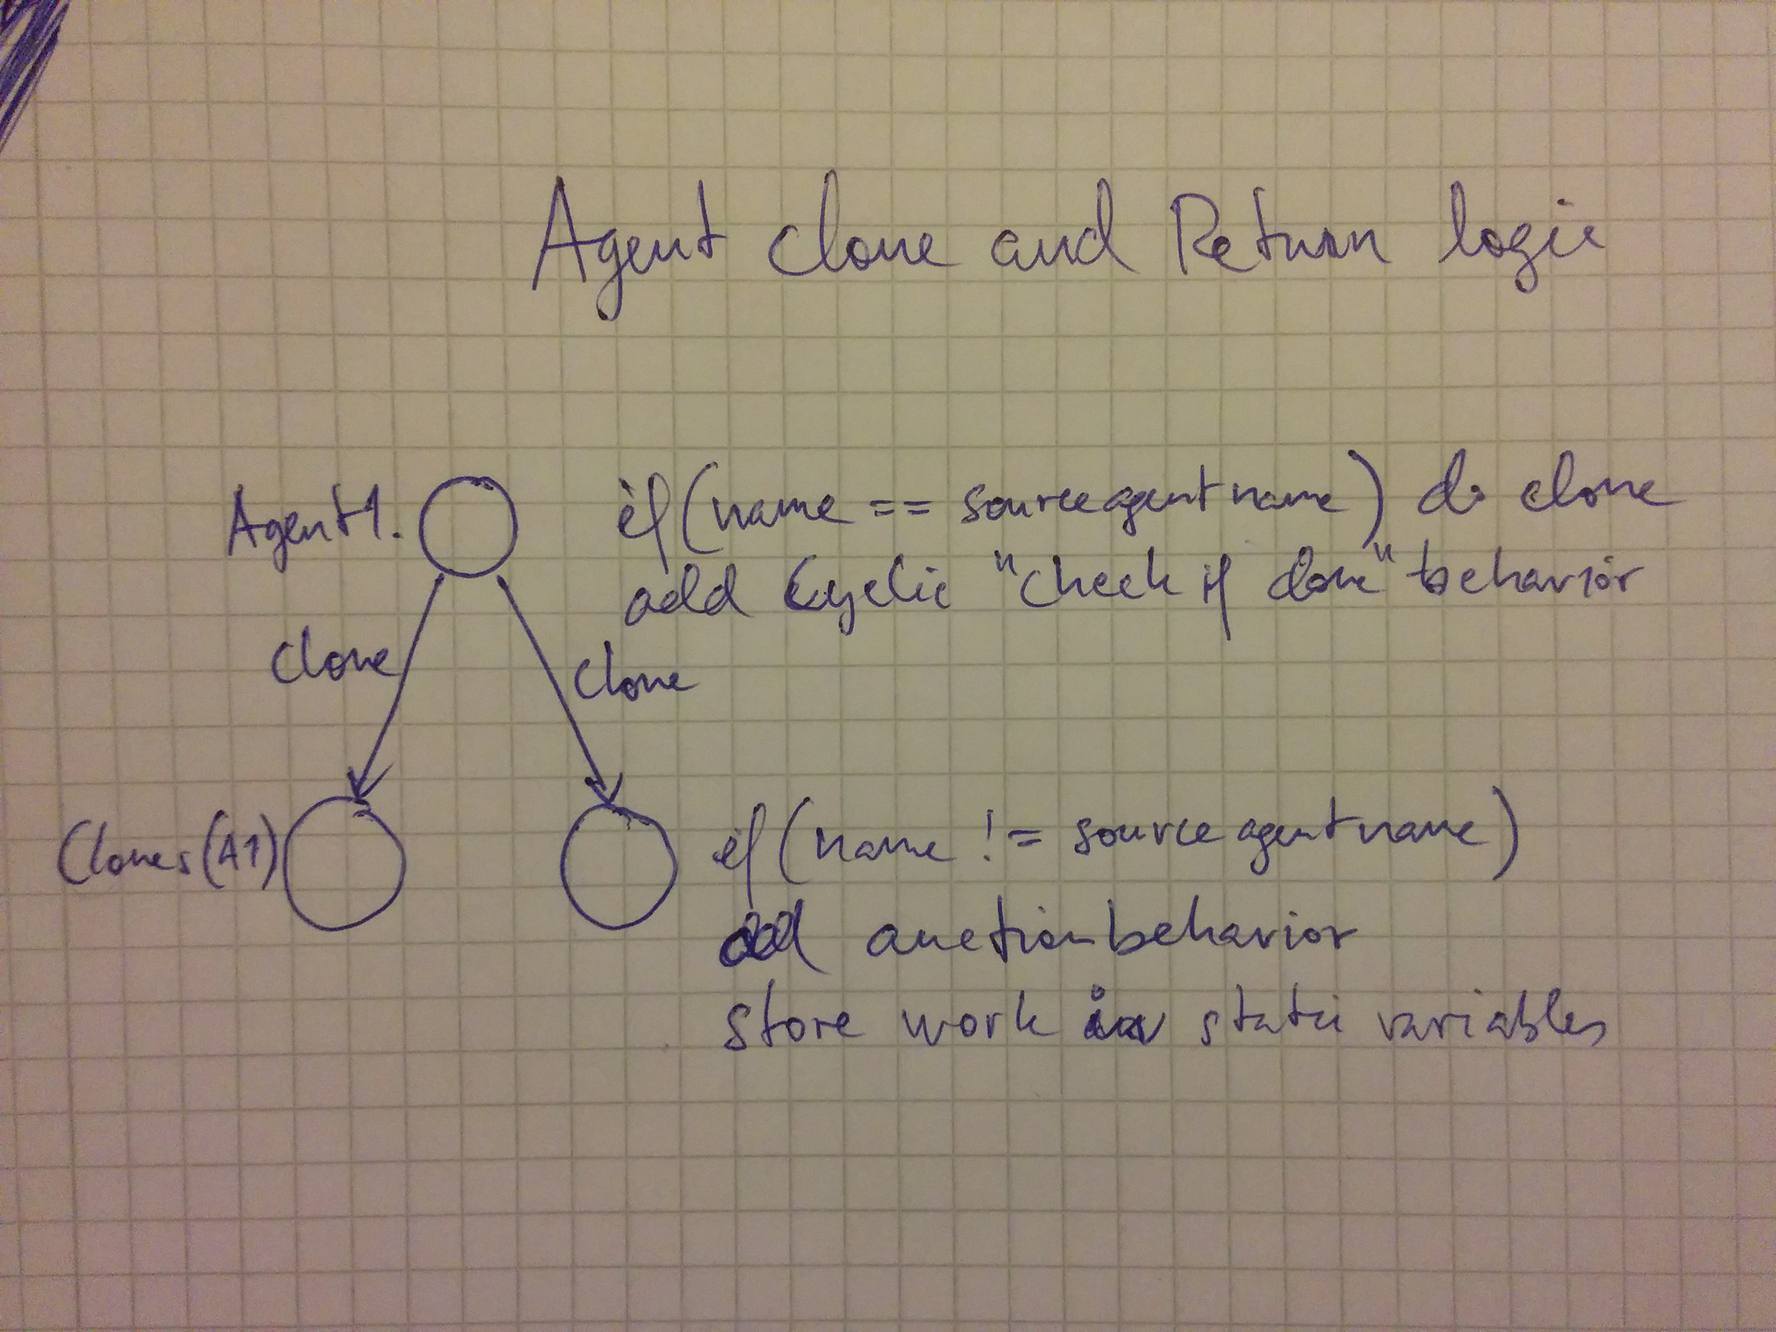 Agent clone and Return logic
Agent1. if (name == sourceagentname) do clone
add Cyclic "check if done" behavior
clone clone
Clones(A1) if (name != sourceagentname)
add auctionbehavior
store work in static variables